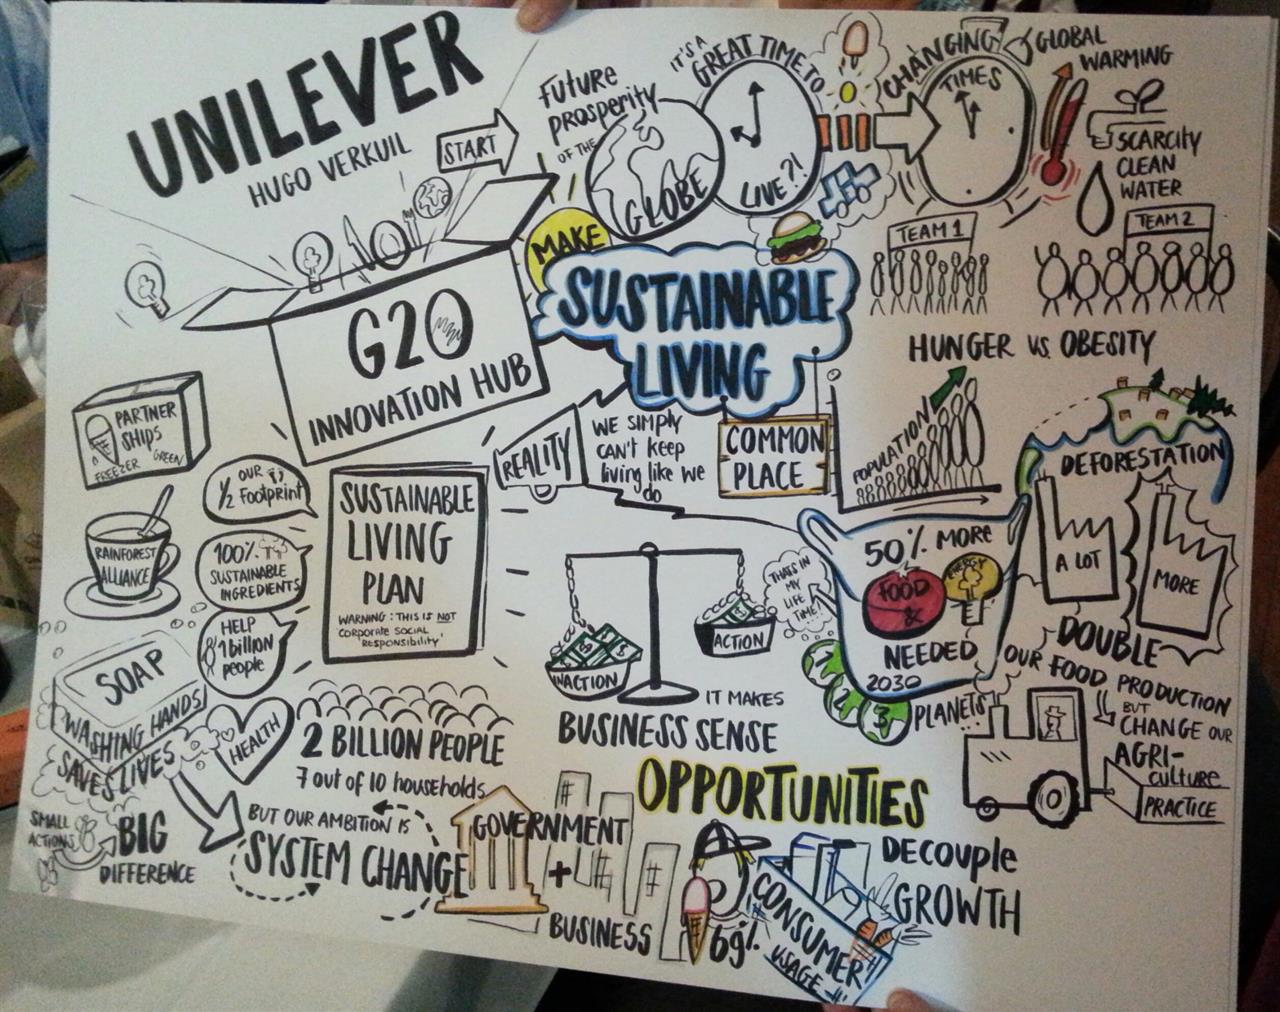 UNILEVER
HUGO VERKUIL
START
Future
prosperity
OF THE
GLOBE
IT'S A
GREAT TIME TO
LIVE?!
CHANGING
TIMES
GLOBAL
WARMING
SCARCITY
CLEAN
WATER
TEAM 1
TEAM 2
HUNGER VS. OBESITY
MAKE
SUSTAINABLE
LIVING
COMMON
PLACE
G20
INNOVATION HUB
REALITY
WE SIMPLY
CAN'T KEEP
living like we
do
POPULATION
DEFORESTATION
A LOT
MORE
50% MORE
FOOD
&
ENERGY
NEEDED
2030
THAT'S IN
MY
LIFE
TIME!
1
2
3
PLANETS
OUR
DOUBLE
FOOD PRODUCTION
BUT
CHANGE OUR
AGRI-
culture
PRACTICE
PARTNER
SHIPS
FREEZER GREEN
RAINFOREST
ALLIANCE
OUR
1/2 Footprint
100%
SUSTAINABLE
INGREDIENTS
HELP
1 billion
people
SUSTAINABLE
LIVING
PLAN
WARNING: THIS IS NOT
CORPORATE SOCIAL
RESPONSIBILITY
INACTION
ACTION
IT MAKES
BUSINESS SENSE
SOAP
WASHING HANDS
SAVES LIVES
HEALTH
SMALL
ACTIONS
BIG
DIFFERENCE
2 BILLION PEOPLE
7 out of 10 households
BUT OUR AMBITION IS
SYSTEM CHANGE
GOVERNMENT
+
BUSINESS
OPPORTUNITIES
DECOUPLE
GROWTH
69%
CONSUMER
USAGE